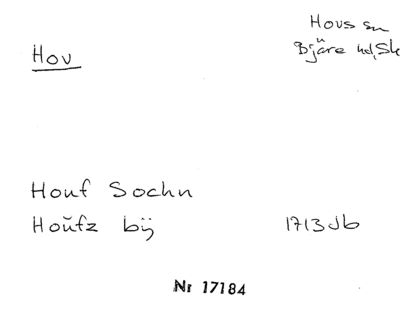 Hov
Hovs sn
Bjäre hd, Sk
Houf Sochn
Hoŭfz bÿ
1713 Jb
Nr 17184